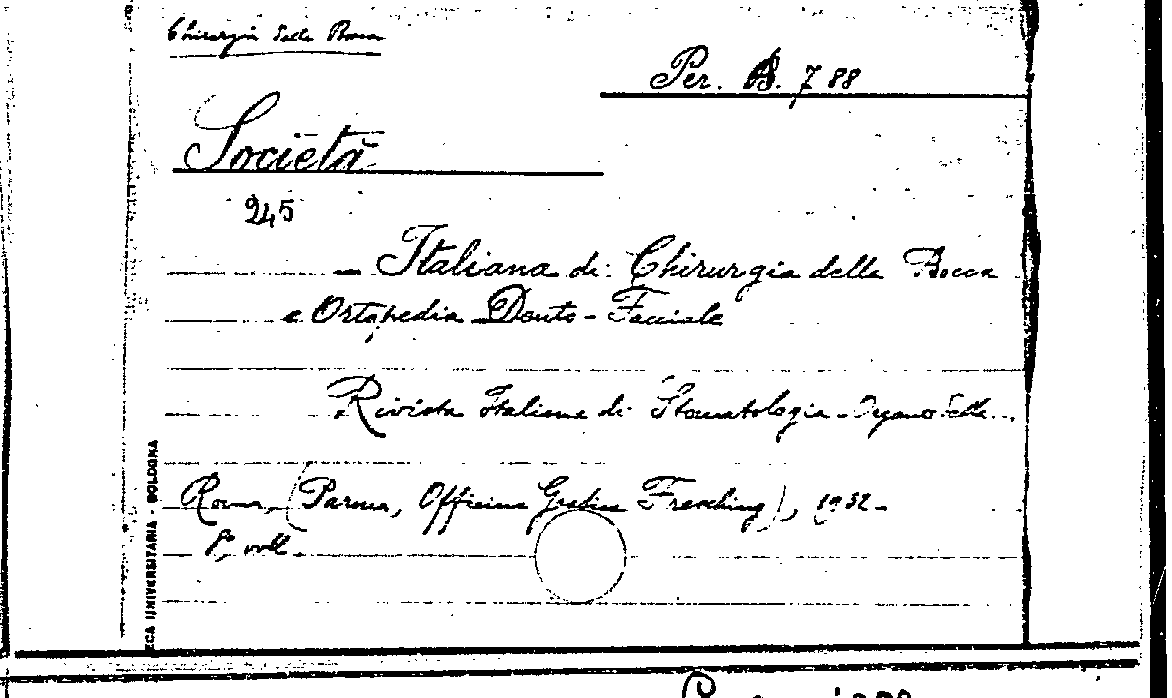 Chirurgia della Bocca
Per. B. 788
Società
245
— Italiana di Chirurgia della Bocca
e Ortopedia Donto-Facciale
Rivista Italiana di Stomatologia - Organo della...
Roma, (Parma, Officina Grafica Freschnig), 1932-
8°, voll.
ECA UNIVERSITARIA - BOLOGNA